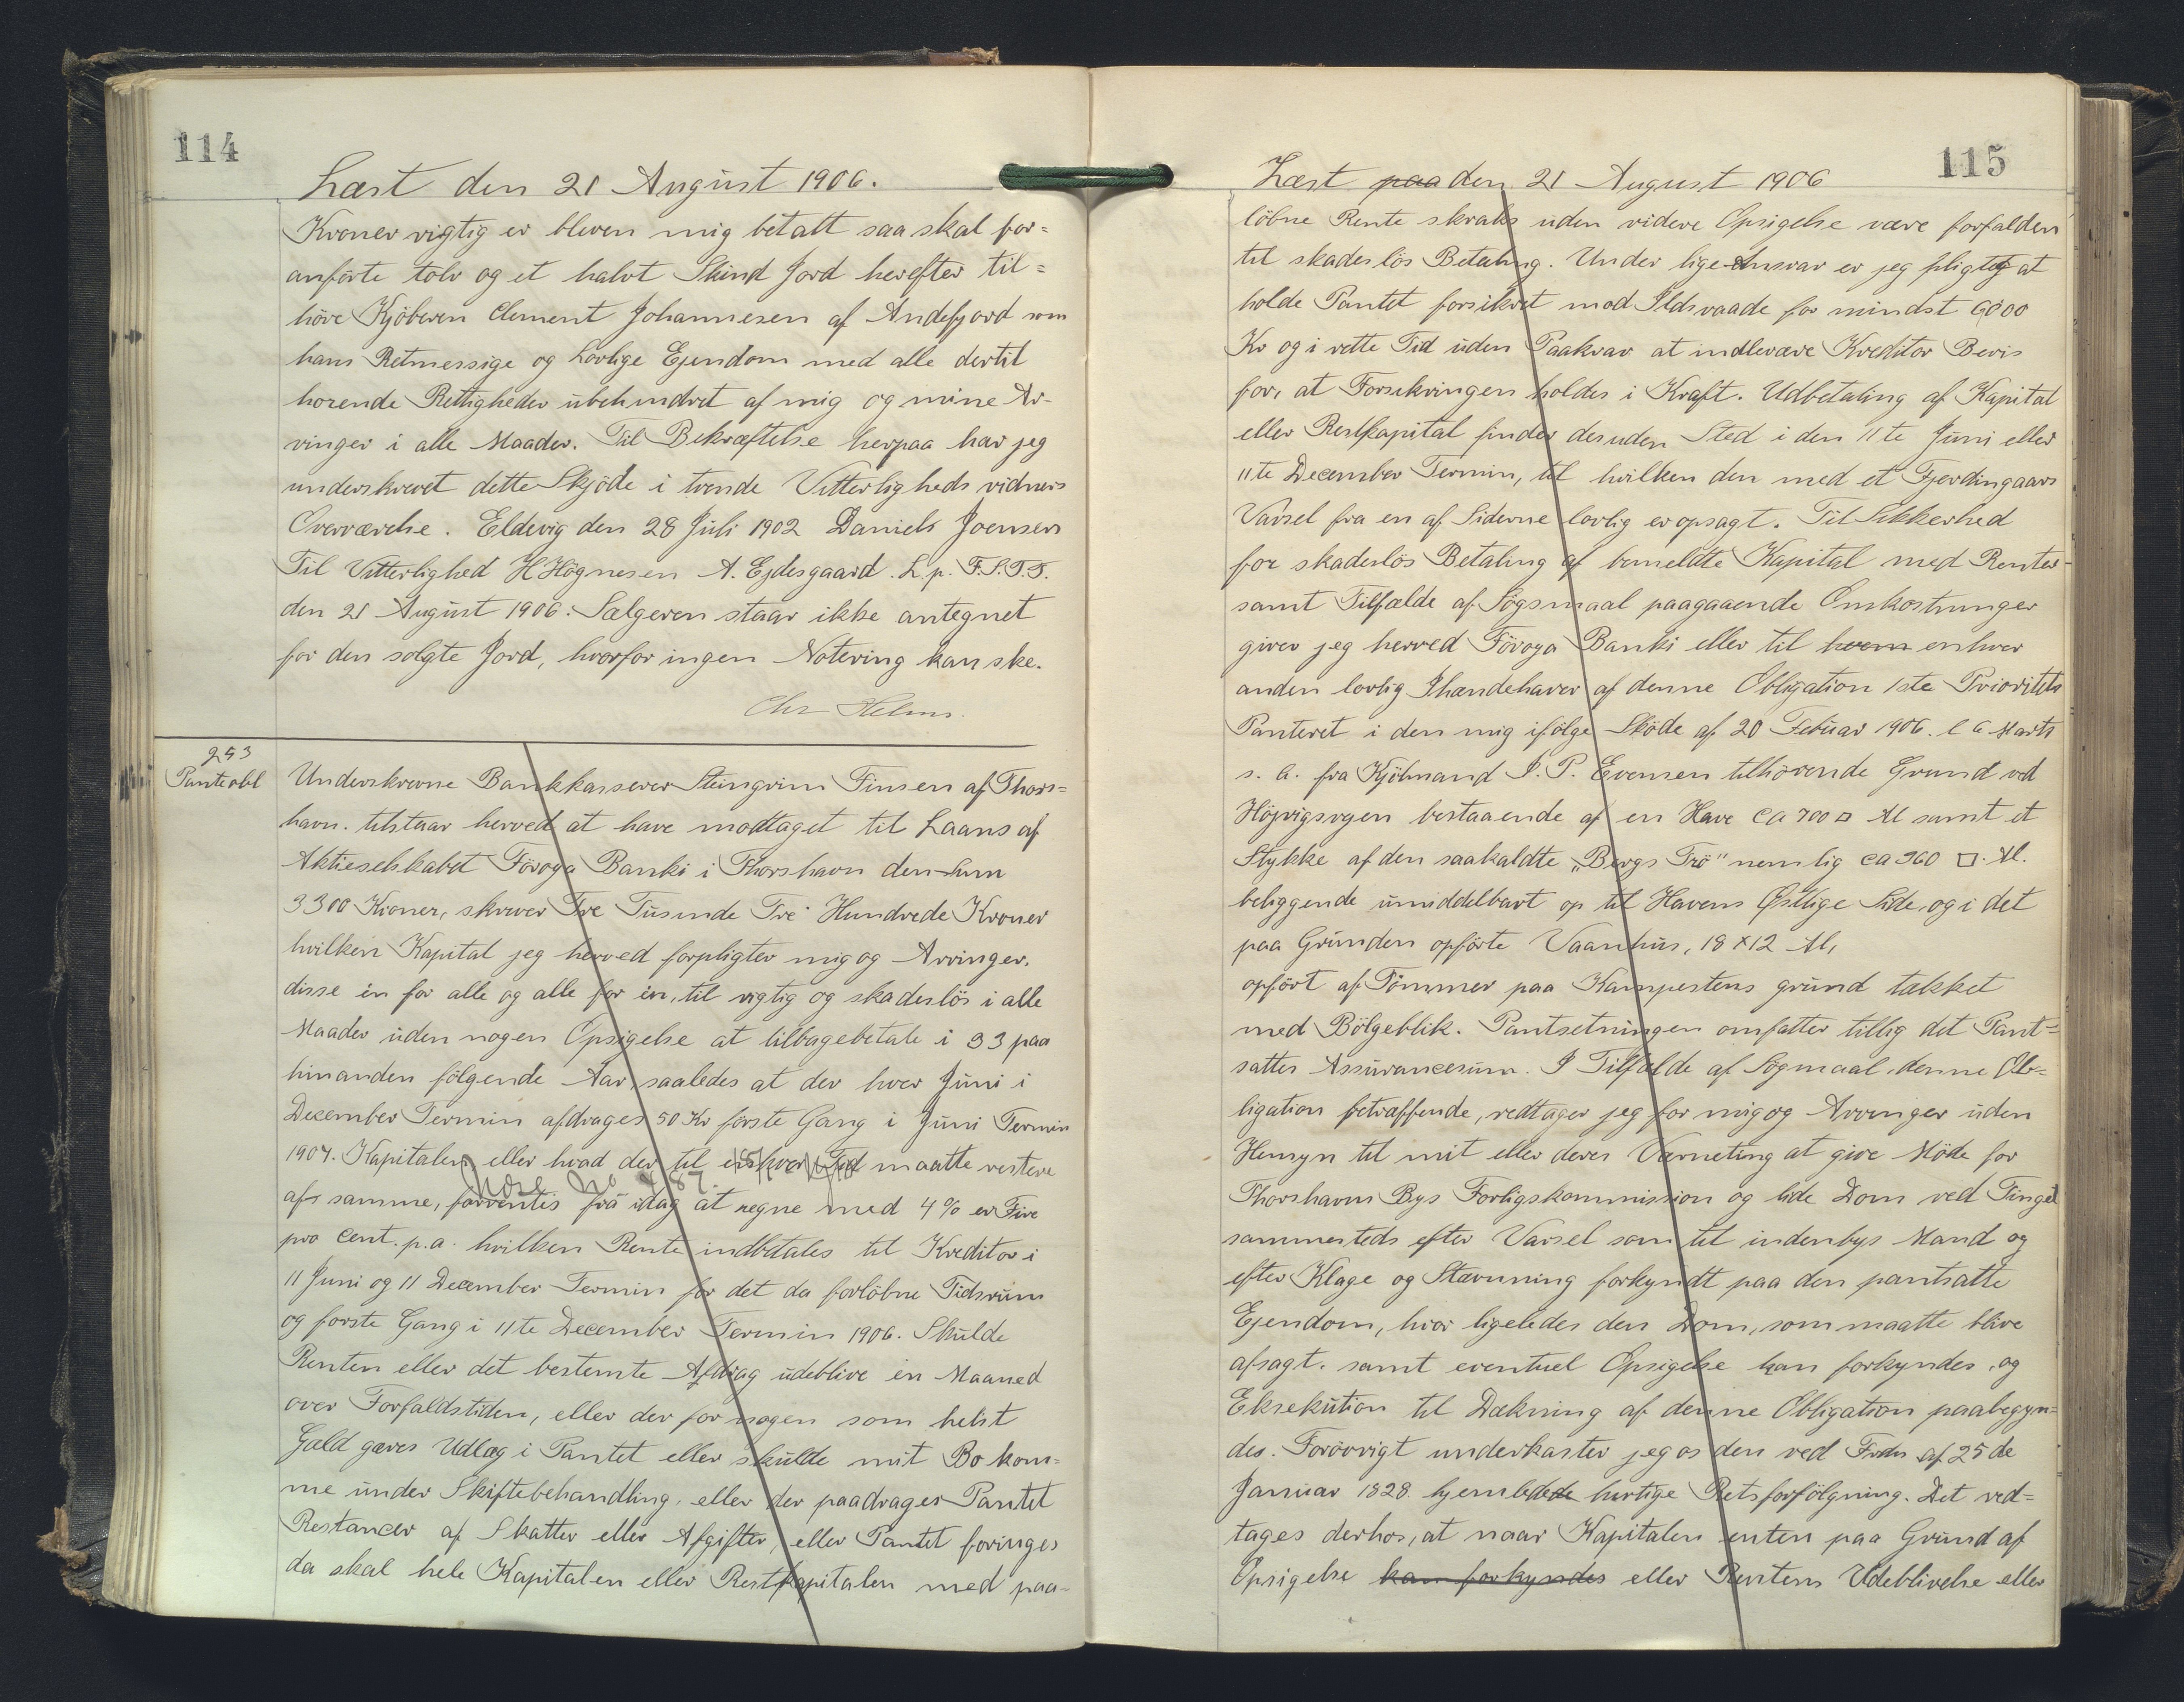 114
Læst den 21 August 1906.
Kroner rigtig er bleven mig betalt saa skal for=
anförte tolv og et halvt Skind Jord herefter til=
höre Kjöberen Clement Johannesen af Andefjord som
hans Retmessige og Lovlige Ejendom med alle dertil
horende Rettigheder ubehindret af mig og mine Ar-
vinger i alle Maader. Til Bekræftelse herpaa har jeg
underskrevet dette Skjöde i tvende Vitterligheds vidners
Overværelse. Eldevig den 28 Juli 1902 Daniels Joensen
Til Vitterlighed H Högnesen A. Ejdesgaard. L. p. F.S.T.T.
den 21 August 1906: Sælgeren staar ikke antegnet
for den solgte Jord, hvorfor ingen Notering kan ske.
Chr Helms.
253
Panteobl
Underskrevne Bankkasserer Steingrim Finsen af Thors=
havn. tilstaar herved at have modtaget til Laans af
Aktieselskabet Föroya Banki i Thorshavn den Sum
3300 Kroner, skriver Tre Tusinde Tre Hundrede Kroner
hvilken Kapital jeg herved forpligter mig og Arvinger,
disse én for alle og alle for én, til rigtig og skadeslös i alle
Maader uden nogen Opsigelse at tilbagebetale i 33 paa
hinanden fölgende Aar, saaledes at der hver Juni i
December Termin afdrages 50 Kr förste Gang i Juni Termin
1907. Kapitalen eller hvad der til enhver Tid maatte restere
af samme, forrentes fra idag at regne med 4 % er Fire
pro Cent. p.a. hvilken Rente indbetales til Kreditor i
11 Juni og 11 December Termin for det da forlöbne Tidsrum
og forste Gang i 11te December Termin 1906. Skulde
Renten eller det bestemte Afdrag udeblive én Maaned
over Forfaldstiden, eller der for nogen som helst
Gæld gøres Udlæg i Pantet eller skulde mit Bo kom=
me under Skiftebehandling, eller der paadrages Pantet
Restancer af Skatter eller Afgifter, eller Pantet foringes
da skal hele Kapitalen eller Restkapitalen med paa-
115
Læst paa den 21 August 1906
löbne Rente skraks uden videre Opsigelse være forfalden
til skadeslös Betaling. Under lige Ansvar er jeg pligtig at
holde Pantet forsikret mod Ildsvaade for mindst 6000
Kr og i rette Tid uden Paakrav at indlevere Kreditor Bevis
for, at Forsikringen holdes i Kraft. Udbetaling af Kapital
eller Restkapital finder desuden Sted i den 11te Juni eller
11te December Termin, til hvilken den med et Fjerdingaars
Varsel fra en af Siderne lovlig er opsagt. Til Sikkerhed
for skadeslös Betaling af bemeldte Kapital med Renter
samt Tilfælde af Sögsmaal paagaaende Omkostninger
giver jeg herved Föroya Banki eller til hvem enhver
anden lovlig Ihændehaver af denne Obligation 1ste Prioritets
Panteret i den mig ifölge Sköde af 20 Febuar 1906. l 6 Marts
s. A. fra Kjöbmand I. P. Evensen tilhörende Grund ved
Höjvigsvejen bestaaende af en Have Ca 700 □ Al samt et
Stykke af den saakaldte „Bergs Trö" nemlig ca 960 □. Al.
beliggende umiddelbart op til Havens Østlige Side, og i det
paa Grunden opförte Vaanhus, 18 x 12 Al,
opfört af Tömmer paa Kampestens grund tækket
med Bölgeblik. Pantsetningen omfatter tillig det Pant=
sattes Assurancesum. I Tilfælde af Sögmaal denne Ob=
ligation betræffende, vedtager jeg for mig og Arvinger uden
Hensyn til mit eller deres Værneting at give Möde for
Thorshavns Bys Forligskommission og lide Dom ved Tinget
sammesteds efter Varsel som til indenbys Mand og
efter Klage og Stævning forkyndt paa den pantsatte
Ejendom, hvor ligeledes den Dom, som maatte blive
afsagt. samt eventuel Opsigelse kan forkyndes, og
Eksekution til Dækning af denne Obligation paabegyn=
des. Forövrigt underkaster jeg os den ved Frdn af 25de
Januar 1828 hjemlede hurtige Retsforfölgning. Det ved=
tages derhos, at naar Kapitalen enten paa Grund af
Opsigelse kan forkyndes eller Rentens Udeblivelse eller